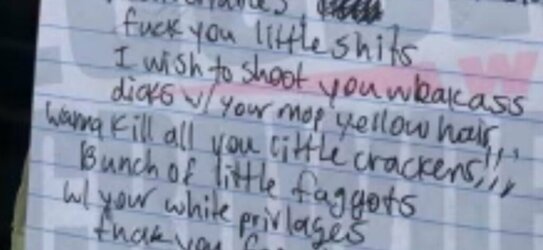 fuck you little shits
I wish to shoot you weakass
dicks w/ your mop yellow hair,,,
Wanna kill all you little crackers,,,
Bunch of little faggots
w/ your white privlages